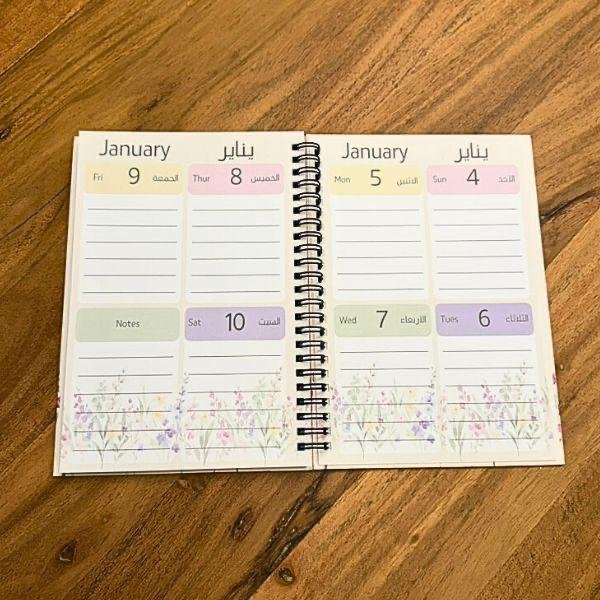 January يناير
Sun 4 الأحد
Mon 5 الاثنين
Tues 6 الثلاثاء
Wed 7 الأربعاء
January يناير
Thur 8 الخميس
Fri 9 الجمعة
Sat 10 السبت
Notes